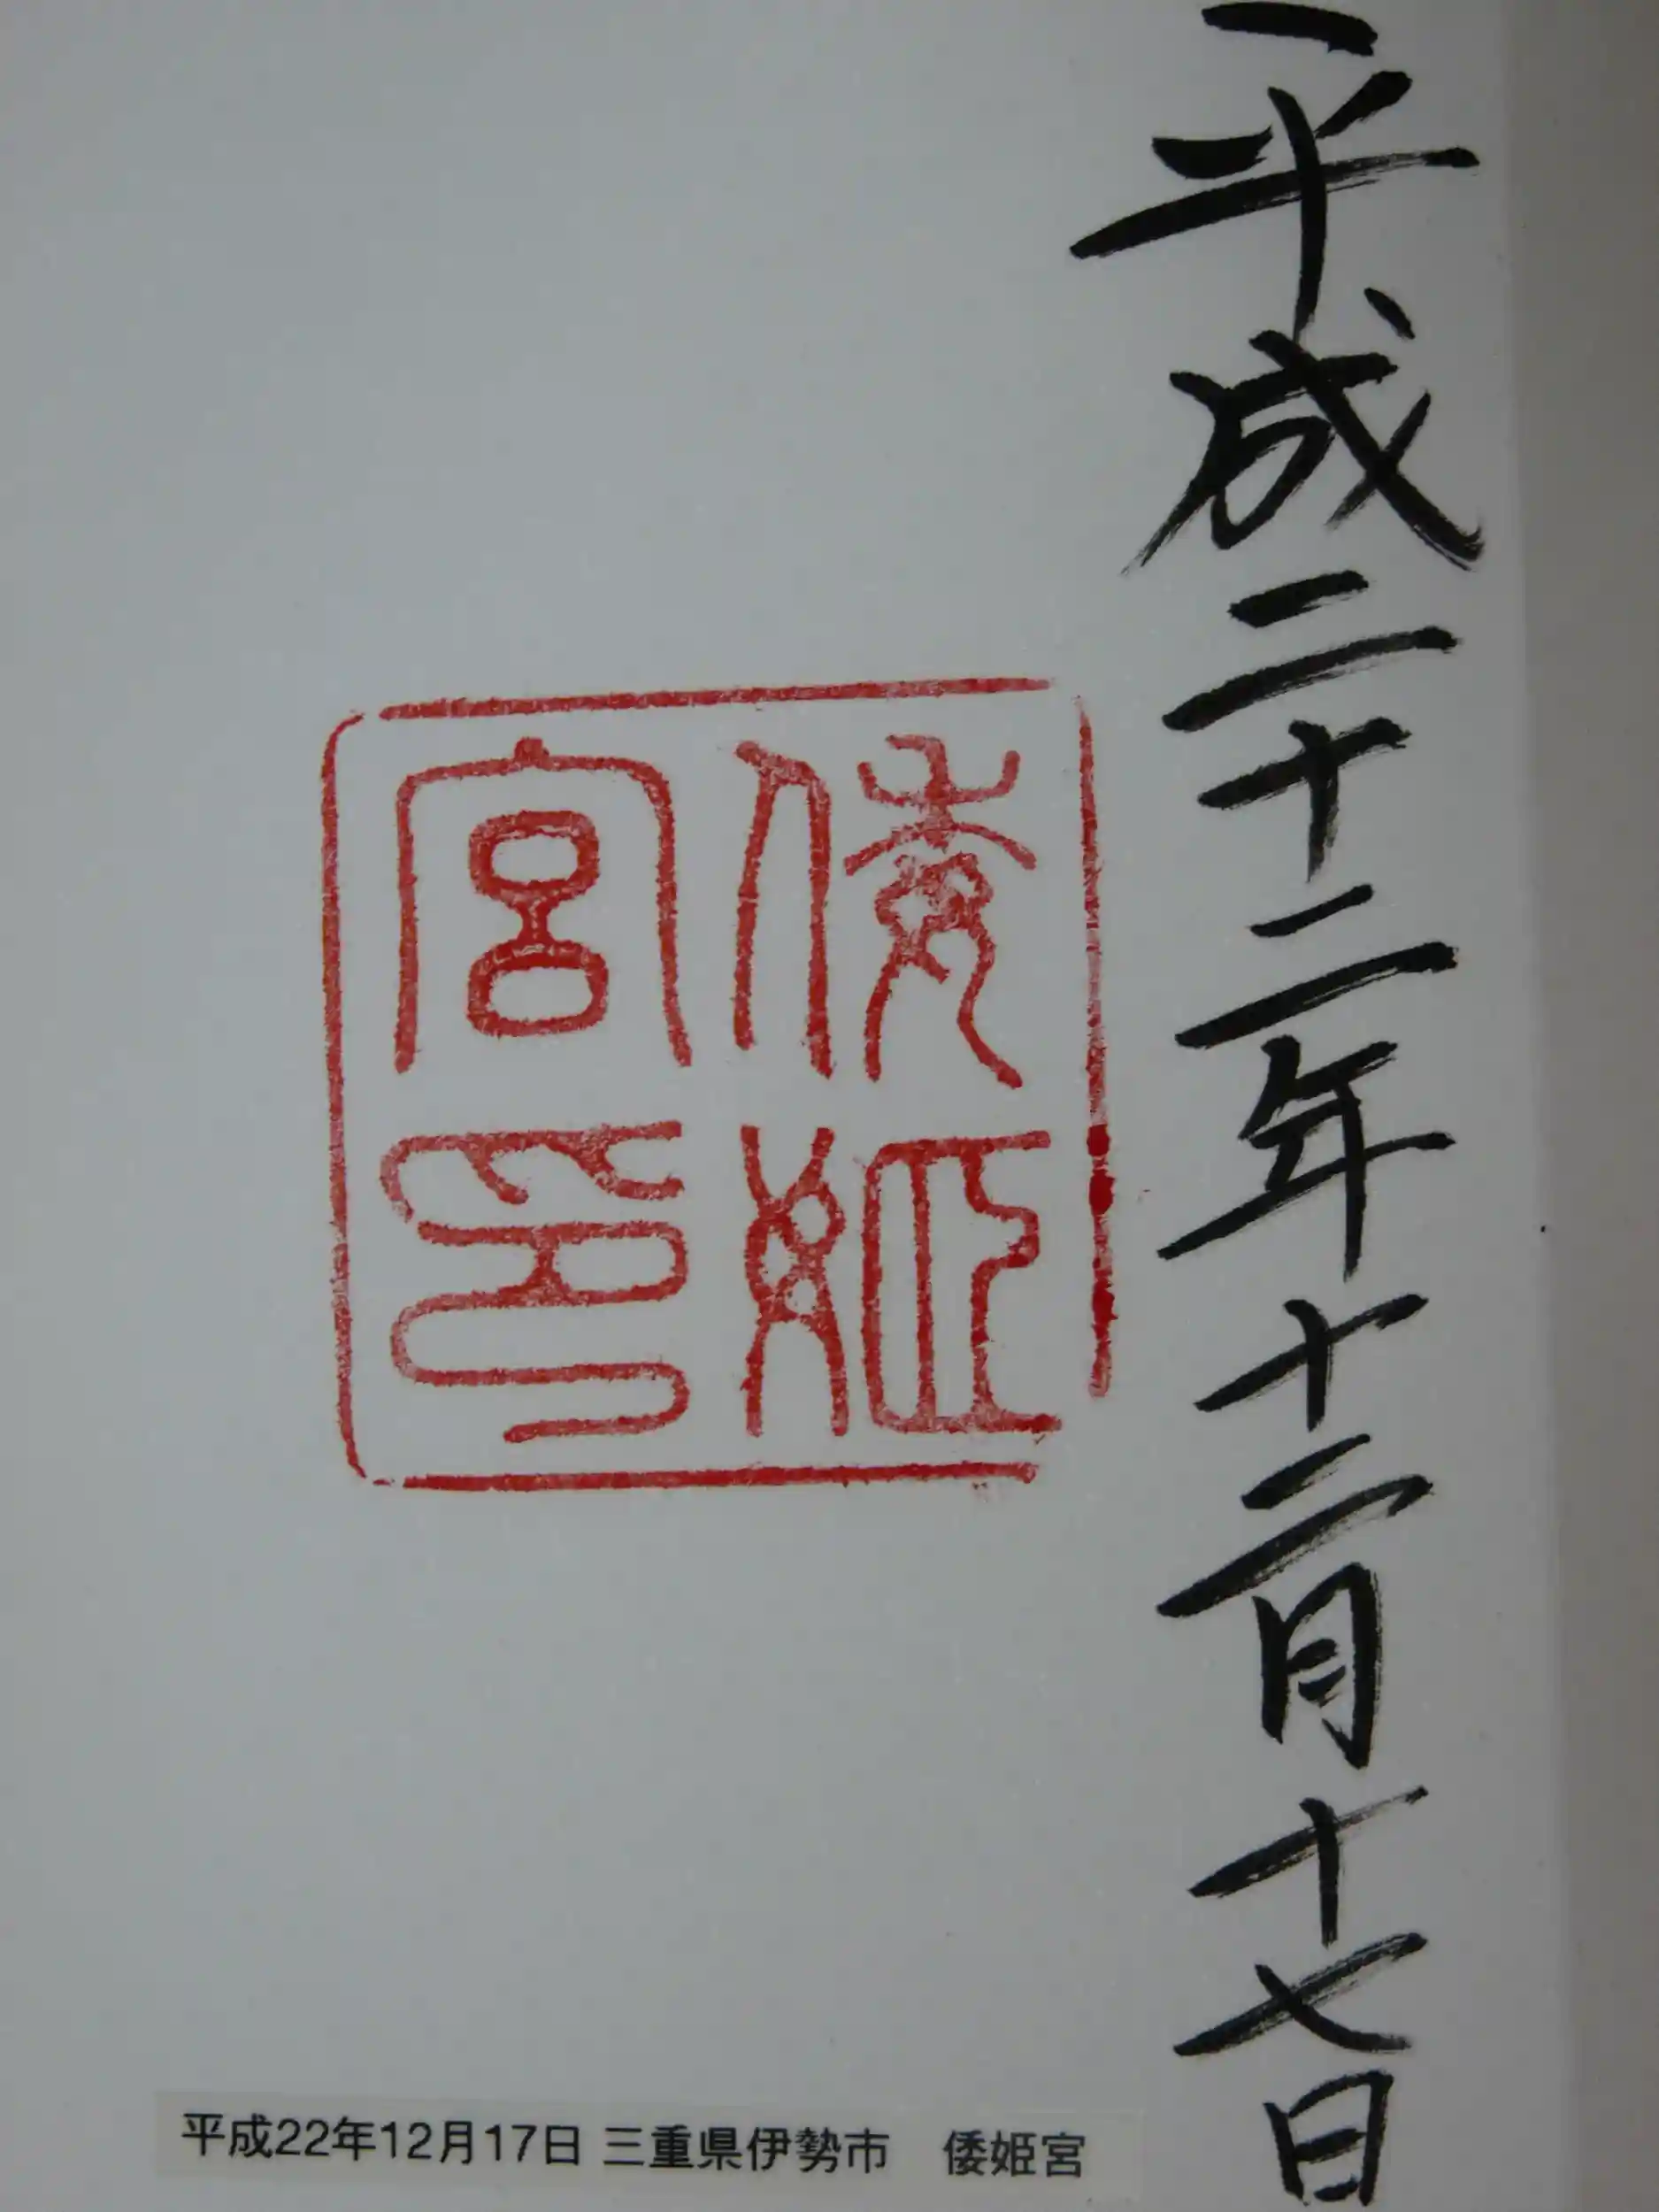 平成二十二年十二月十七日
倭姫
宮印
平成22年12月17日 三重県伊勢市　倭姫宮